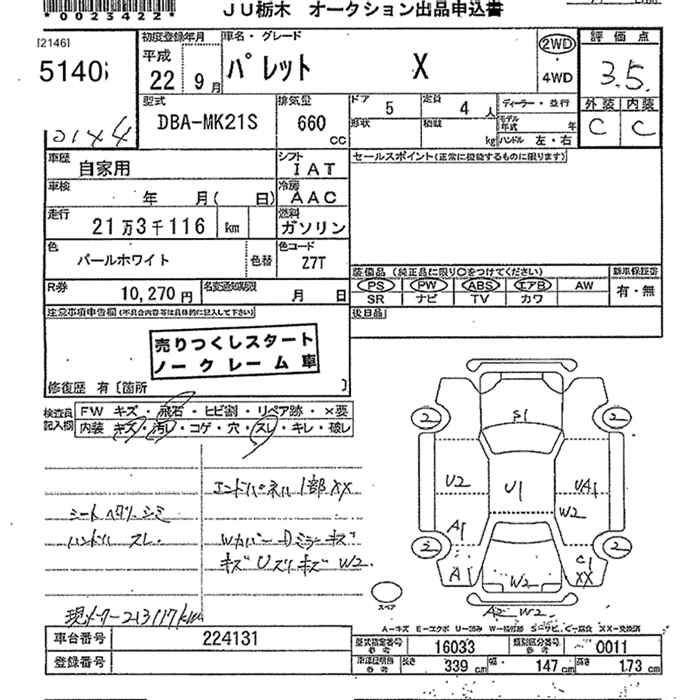 *0023422*
JU栃木 オークション出品申込書
[2146]
5140
0144
初度登録年月
平成
22 9月
車名・グレード
パレット X
2WD
・
4WD
評価点
3.5
外装 内装
C C
型式
DBA-MK21S
排気量
660
CC
ドア 5
定員 4人
ディーラー・並行
形状
積載 kg
モデル年式 年
ハンドル 左・右
車歴
自家用
シフト
IAT
セールスポイント(正常に機能するものに限ります)
車検
年 月( 日)
冷房
AAC
走行
21万3千116 km
燃料
ガソリン
色
パールホワイト
色替
色コード
Z7T
装備品(純正品に限り○をつけてください)
新車保証書
PS PW ABS エアB AW
SR ナビ TV カワ
有・無
R券
10,270円
名変通知期限
月 日
後日品
注意事項申告欄(不具合内容等は具体的に記入して下さい)
売りつくしスタート
ノークレーム車
修復歴 有〔箇所 〕
検査員記入欄
FW キズ・飛石・ヒビ割・リペア跡・×要
内装 キズ・汚レ・コゲ・穴・スレ・キレ・破レ
エンドパネル1部XX
シートヘタリ シミ
ハンドル スレ
Wカバー Dミラーキズ
キズ Uズリキズ W2.
現メーター213117km
2 2
S1
U2 U1 UA1
W2
A1
2 2
A W2 C1
XX
A2 W2
スペア
A-キズ E-エクボ U-凹み W-補修跡 S-サビ C-腐食 XX-交換済
車台番号 224131
登録番号
型式指定番号 参考 16033
類別区分番号 参考 0011
車検証明書 参考 長さ 339cm 幅 147cm 高さ 173cm